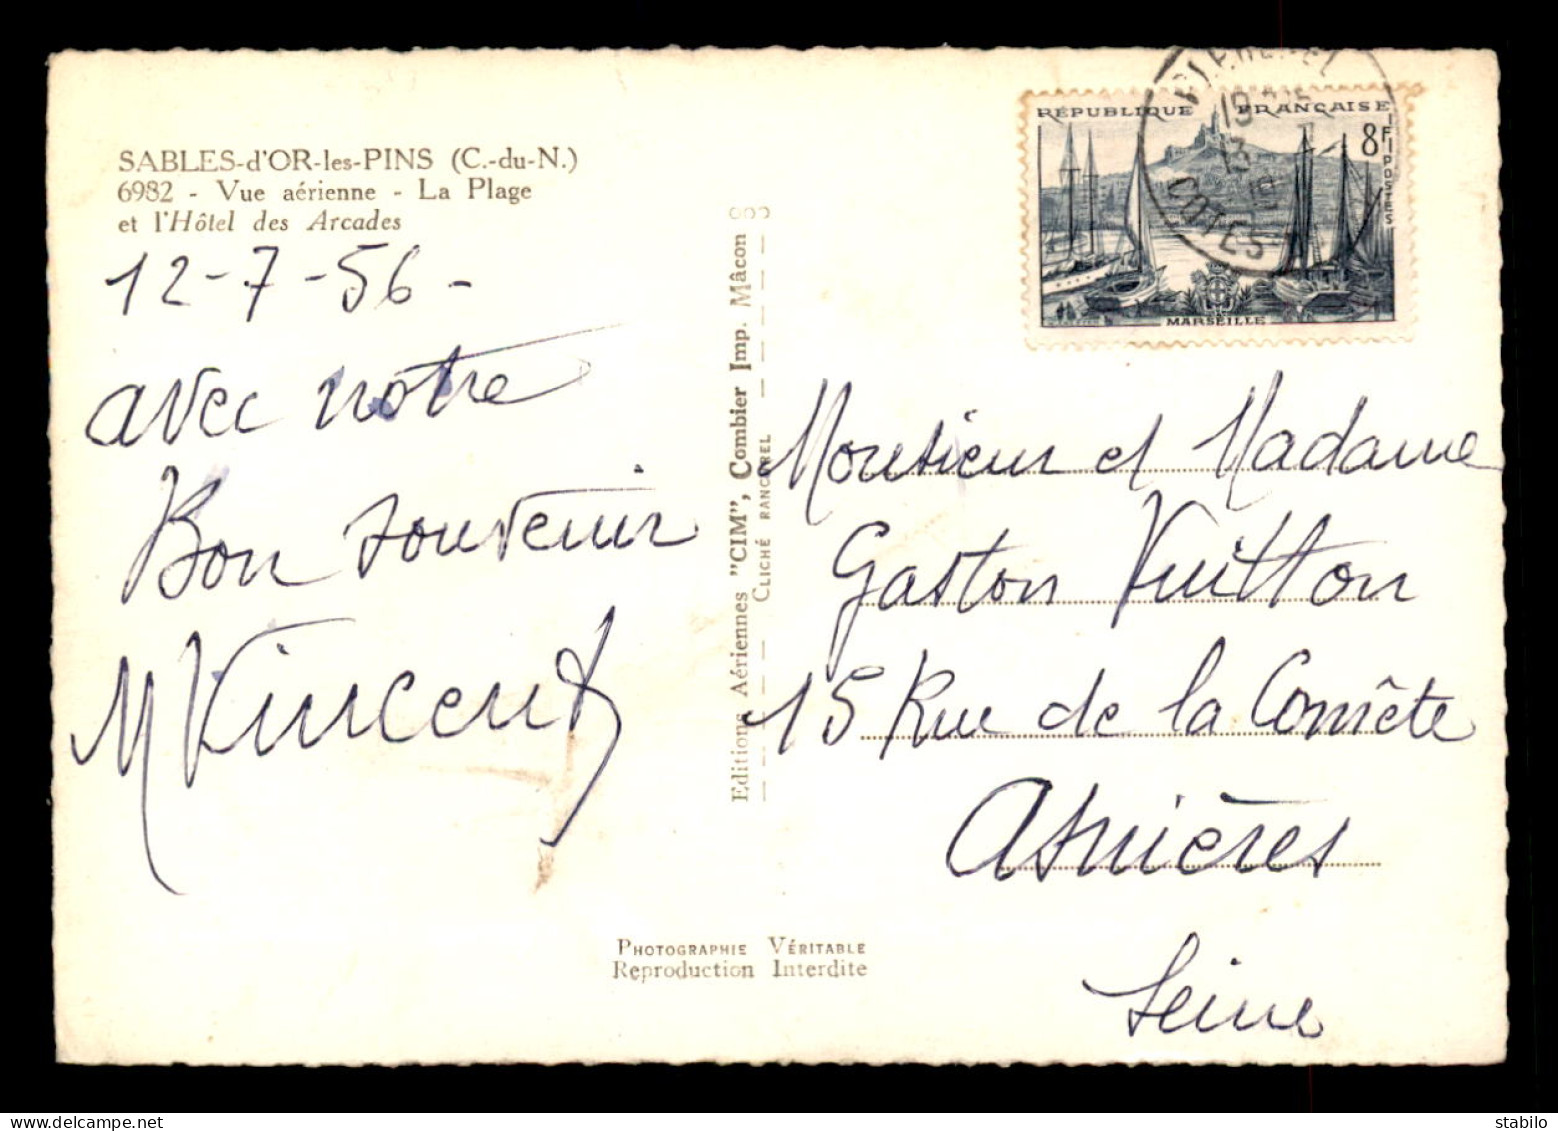 SABLES-d'OR-les-PINS (C.-du-N.)
6982 - Vue aérienne - La Plage
et l'Hôtel des Arcades
12-7-56-
avec notre
Bon souvenir
M Vincent
Editions Aériennes "CIM", Combier Imp. Mâcon
CLICHÉ RANCUREL
PHOTOGRAPHIE VÉRITABLE
Reproduction Interdite
RÉPUBLIQUE FRANÇAISE
8F
POSTES
MARSEILLE
19
13
COTES
Monsieur et Madame
Gaston Vuitton
15 Rue de la Comète
Asnières
Seine
stabilo